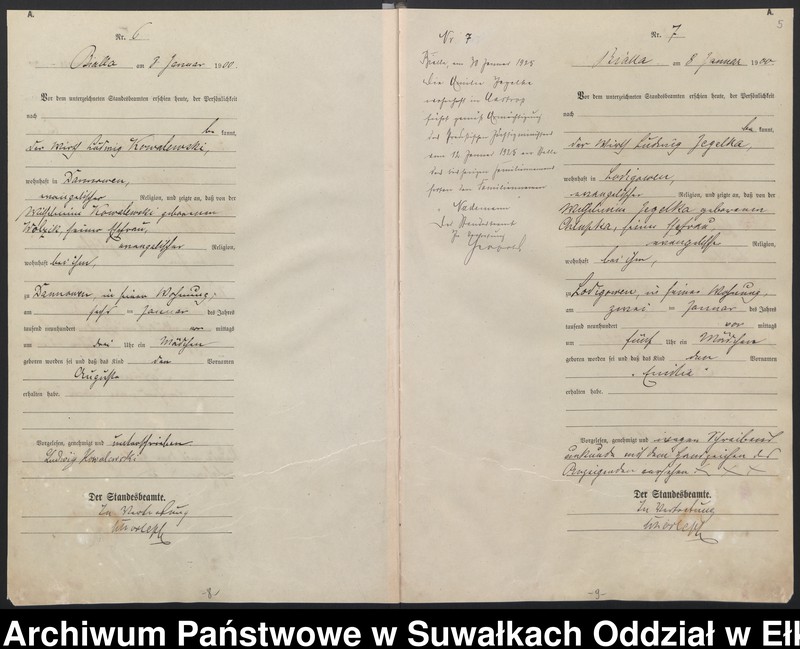 A.
Nr. 6
Bialla am 8 Januar 1900.
Vor dem unterzeichneten Standesbeamten erschien heute, der Persönlichkeit
nach
be kannt,
der Wirth Ludwig Kowalewski,
wohnhaft in Dannowen,
evangelischer Religion, und zeigte an, daß von der
Wilhelmine Kowalewski geborenen
seiner Ehefrau,
evangelischer Religion,
wohnhaft bei ihm,
zu Dannowen, in seiner Wohnung,
am Januar des Jahres
tausend neunhundert vor mittags
um drei Uhr ein Mädchen
geboren worden sei und daß das Kind den Vornamen
Auguste
erhalten habe.
Vorgelesen, genehmigt und unterschrieben
Ludwig Kowalewski
Der Standesbeamte.
In Vertretung
-8-
Nr. 7
Bialla, am 30 Januar 1928
Die Familie Jegelka
wohnhaft in Castrop
führt gemäß Ermächtigung
des Preußischen Justizministers
vom 12 Januar 1928 an Stelle
des bisherigen Familiennamens
fortan den Familiennamen
Der Standesbeamte
In Vertretung
A.
5
Nr. 7
Bialla am 8 Januar 1900.
Vor dem unterzeichneten Standesbeamten erschien heute, der Persönlichkeit
nach
be kannt,
der Wirth Ludwig Jegelka,
wohnhaft in Lodigowen,
evangelischer Religion, und zeigte an, daß von der
Wilhelmine Jegelka geborenen
Chlupka, seiner Ehefrau,
evangelischer Religion,
wohnhaft bei ihm,
zu Lodigowen, in seiner Wohnung,
am zwei ten Januar des Jahres
tausend neunhundert vor mittags
um fünf Uhr ein Mädchen
geboren worden sei und daß das Kind den Vornamen
"Emilie"
erhalten habe.
Vorgelesen, genehmigt und wegen Schreibens
unkunde mit dem Handzeichen des
Anzeigenden versehen. + + +
Der Standesbeamte.
In Vertretung
-9-
Archiwum Państwowe w Suwałkach Oddział w Eł